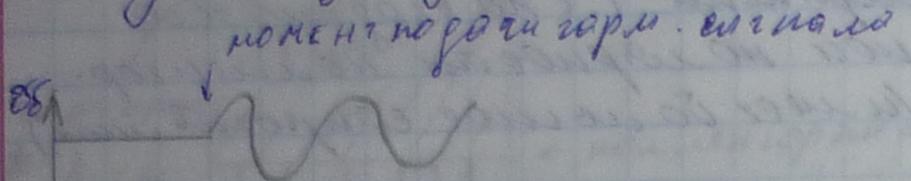 момент подачи гарм. сигнала